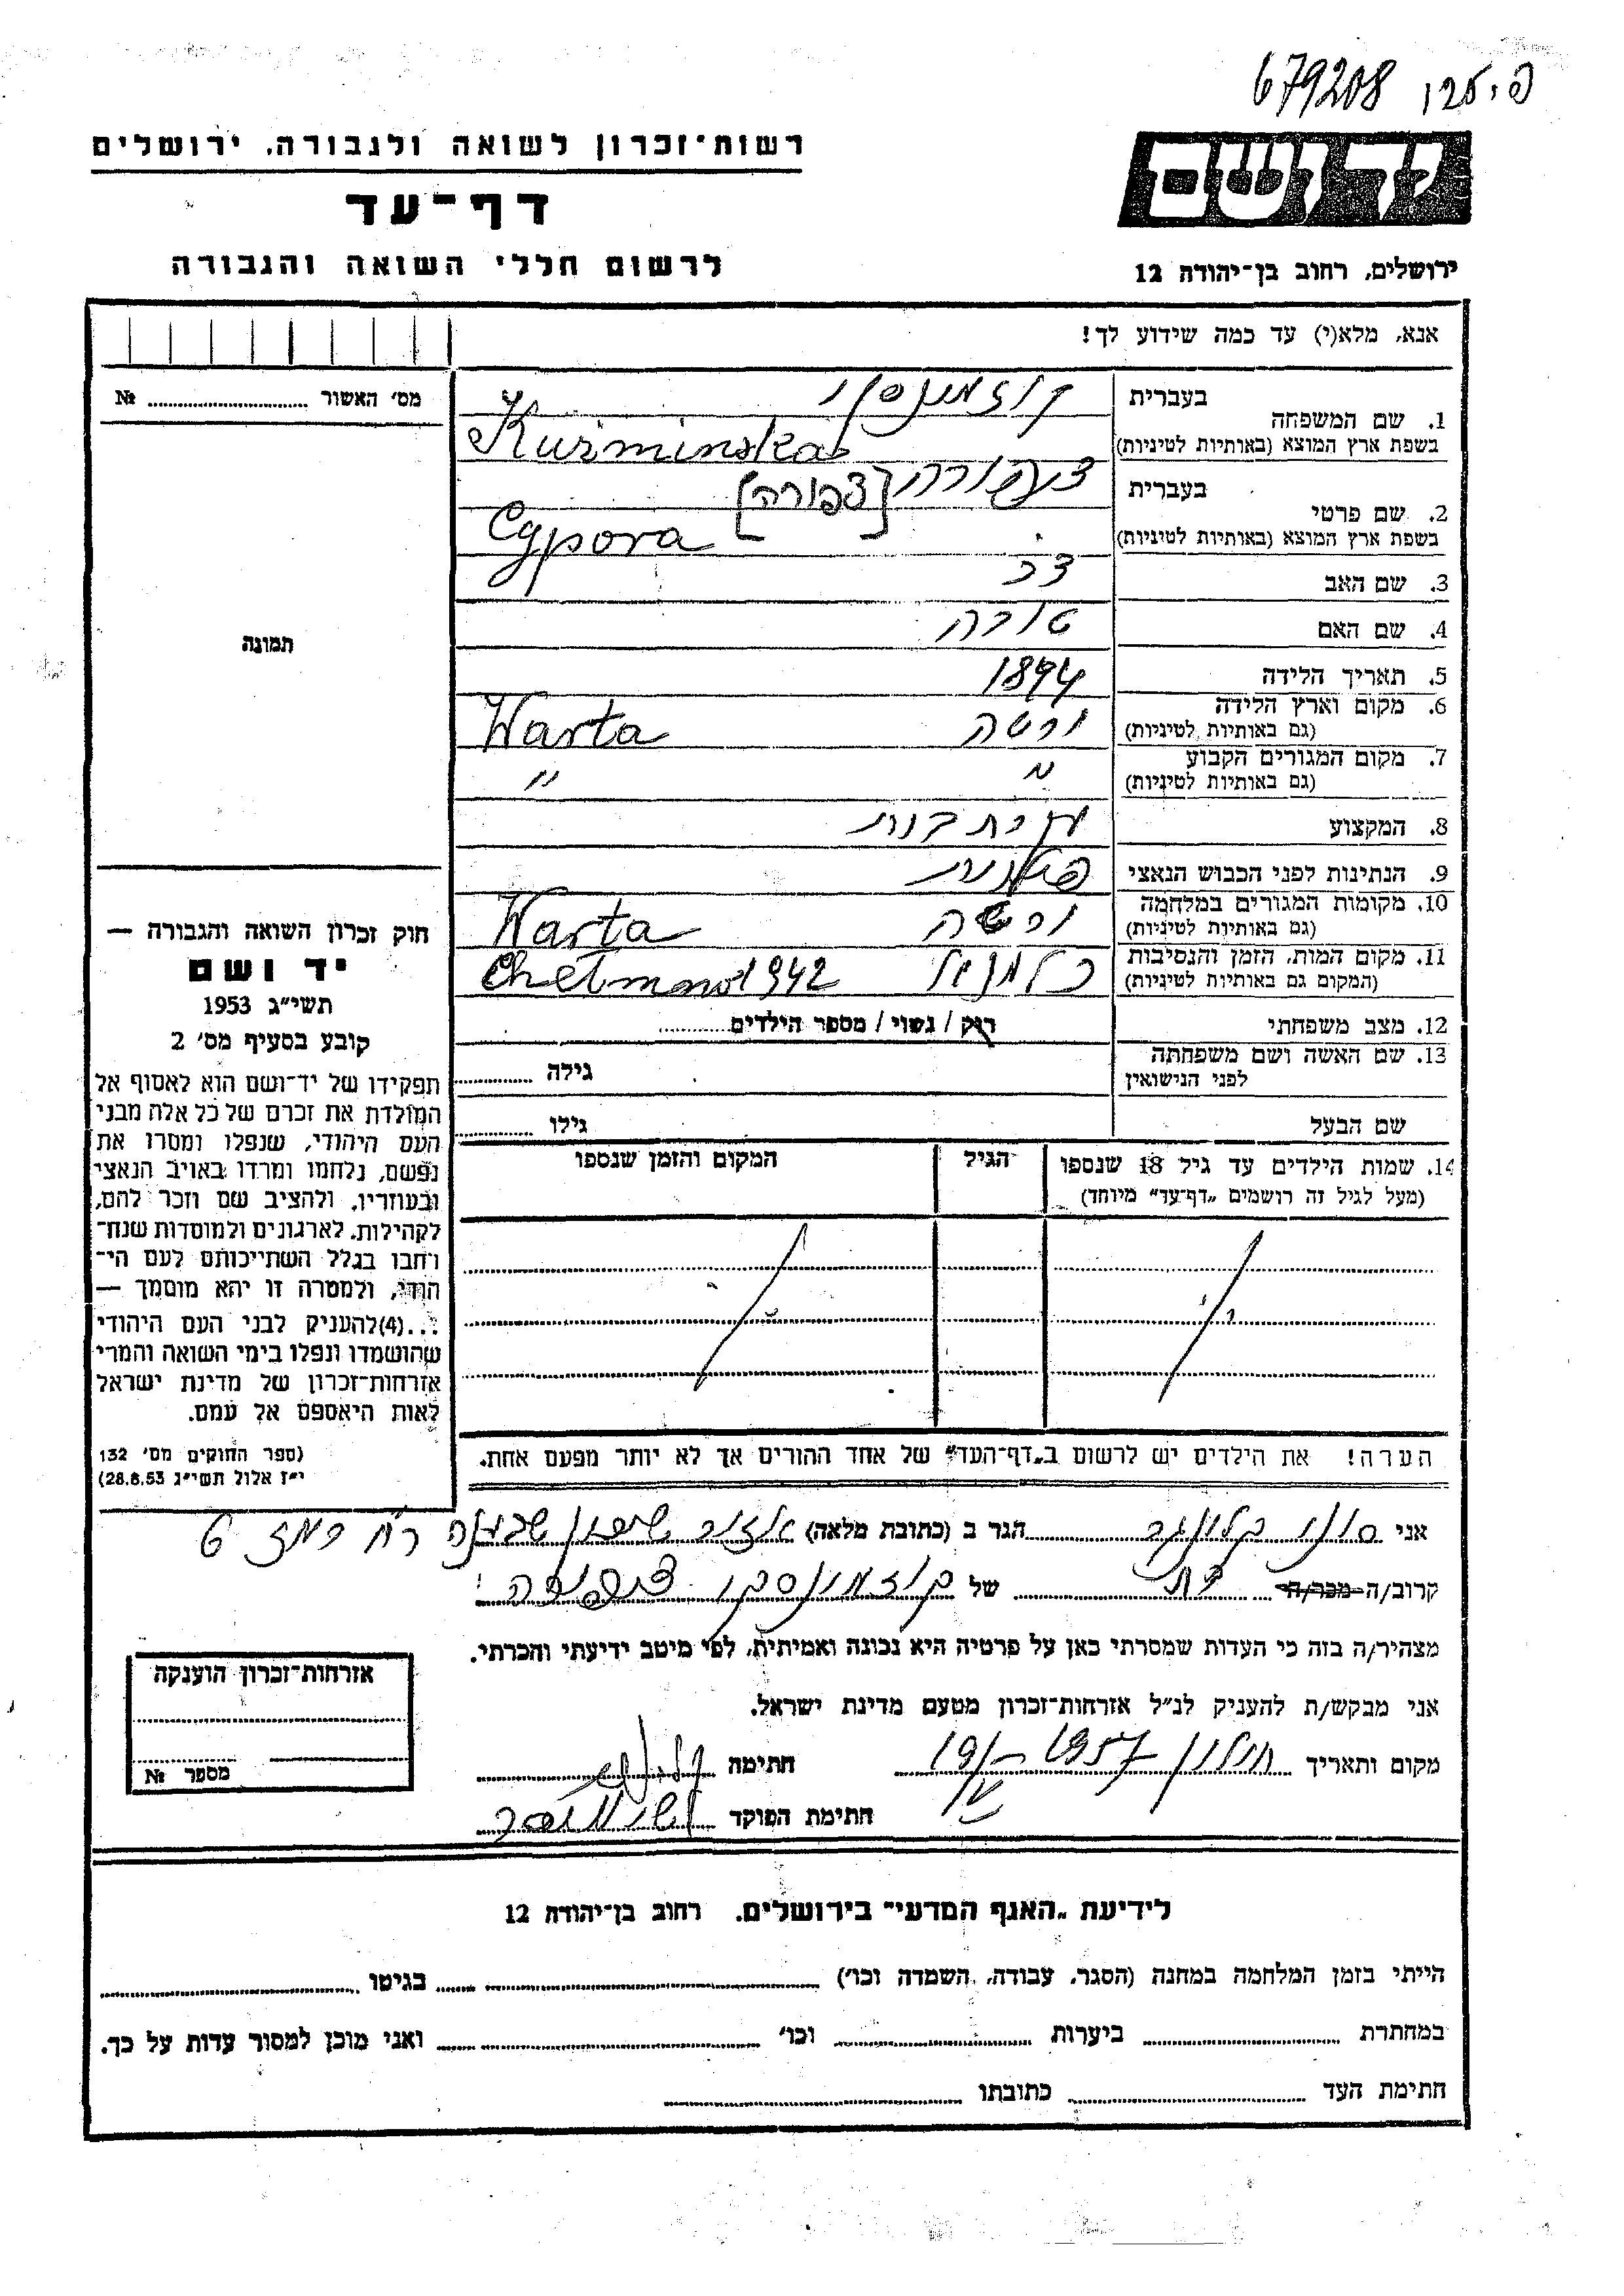 679208
רשות-זכרון לשואה ולגבורה, ירושלים
יד ושם
דף-עד
לרשום חללי השואה והגבורה
ירושלים, רחוב בן-יהודה 12
אנא, מלא(י) עד כמה שידוע לך!
מס' האשור № 
1. שם המשפחה
בעברית קוזמינסקי
בשפת ארץ המוצא (באותיות לטיניות) Kuźminska
2. שם פרטי
בעברית [צפורה]
בשפת ארץ המוצא (באותיות לטיניות) Cypora
3. שם האב צבי
4. שם האם טובה
5. תאריך הלידה 1894
6. מקום וארץ הלידה
(גם באותיות לטיניות) ורטה Warta
7. מקום המגורים הקבוע
(גם באותיות לטיניות) " "
8. המקצוע
9. הנתינות לפני הכבוש הנאצי פולנית
10. מקומות המגורים במלחמה
(גם באותיות לטיניות) ורטה Warta
11. מקום המות, הזמן והנסיבות
(המקום גם באותיות לטיניות) Chełmno 1942
12. מצב משפחתי רוק / נשוי / מספר הילדים
13. שם האשה ושם משפחתה
לפני הנישואין גילה
שם הבעל גילו
14. שמות הילדים עד גיל 18 שנספו הגיל המקום והזמן שנספו
(מעל לגיל זה רושמים „דף-עד" מיוחד)
הערה! את הילדים יש לרשום ב„דף-העד" של אחד ההורים אך לא יותר מפעם אחת.
תמונה
חוק זכרון השואה והגבורה —
יד ושם
תשי״ג 1953
קובע בסעיף מס' 2
תפקידו של יד-ושם הוא לאסוף אל
המולדת את זכרם של כל אלה מבני
העם היהודי, שנפלו ומסרו את
נפשם, נלחמו ומרדו באויב הנאצי
ובעוזריו, ולהציב שם וזכר להם,
לקהילות, לארגונים ולמוסדות שנח-
רחבו בגלל השתייכותם לעם הי-
הודי, ולמטרה זו יהא מוסמך —
...(4)להעניק לבני העם היהודי
שהושמדו ונפלו בימי השואה והמרי
אזרחות-זכרון של מדינת ישראל
לאות היאספם אל עמם.
(ספר החוקים מס' 132
י״ז אלול תשי״ג 28.8.53)
אני הגר ב (כתובת מלאה) 6
קרוב/ה מכר/ה בת של קוזמינסקי צפורה
מצהיר/ה בזה כי העדות שמסרתי כאן על פרטיה היא נכונה ואמיתית, לפי מיטב ידיעתי והכרתי.
אני מבקש/ת להעניק לנ״ל אזרחות-זכרון מטעם מדינת ישראל.
מקום ותאריך חולון 1957 חתימה
חתימת הפוקד
אזרחות-זכרון הוענקה
מספר №
לידיעת „האגף המדעי" בירושלים, רחוב בן-יהודה 12
הייתי בזמן המלחמה במחנה (הסגר, עבודה, השמדה וכו') בגיטו
במחתרת ביערות וכו' ואני מוכן למסור עדות על כך.
חתימת העד כתובתו